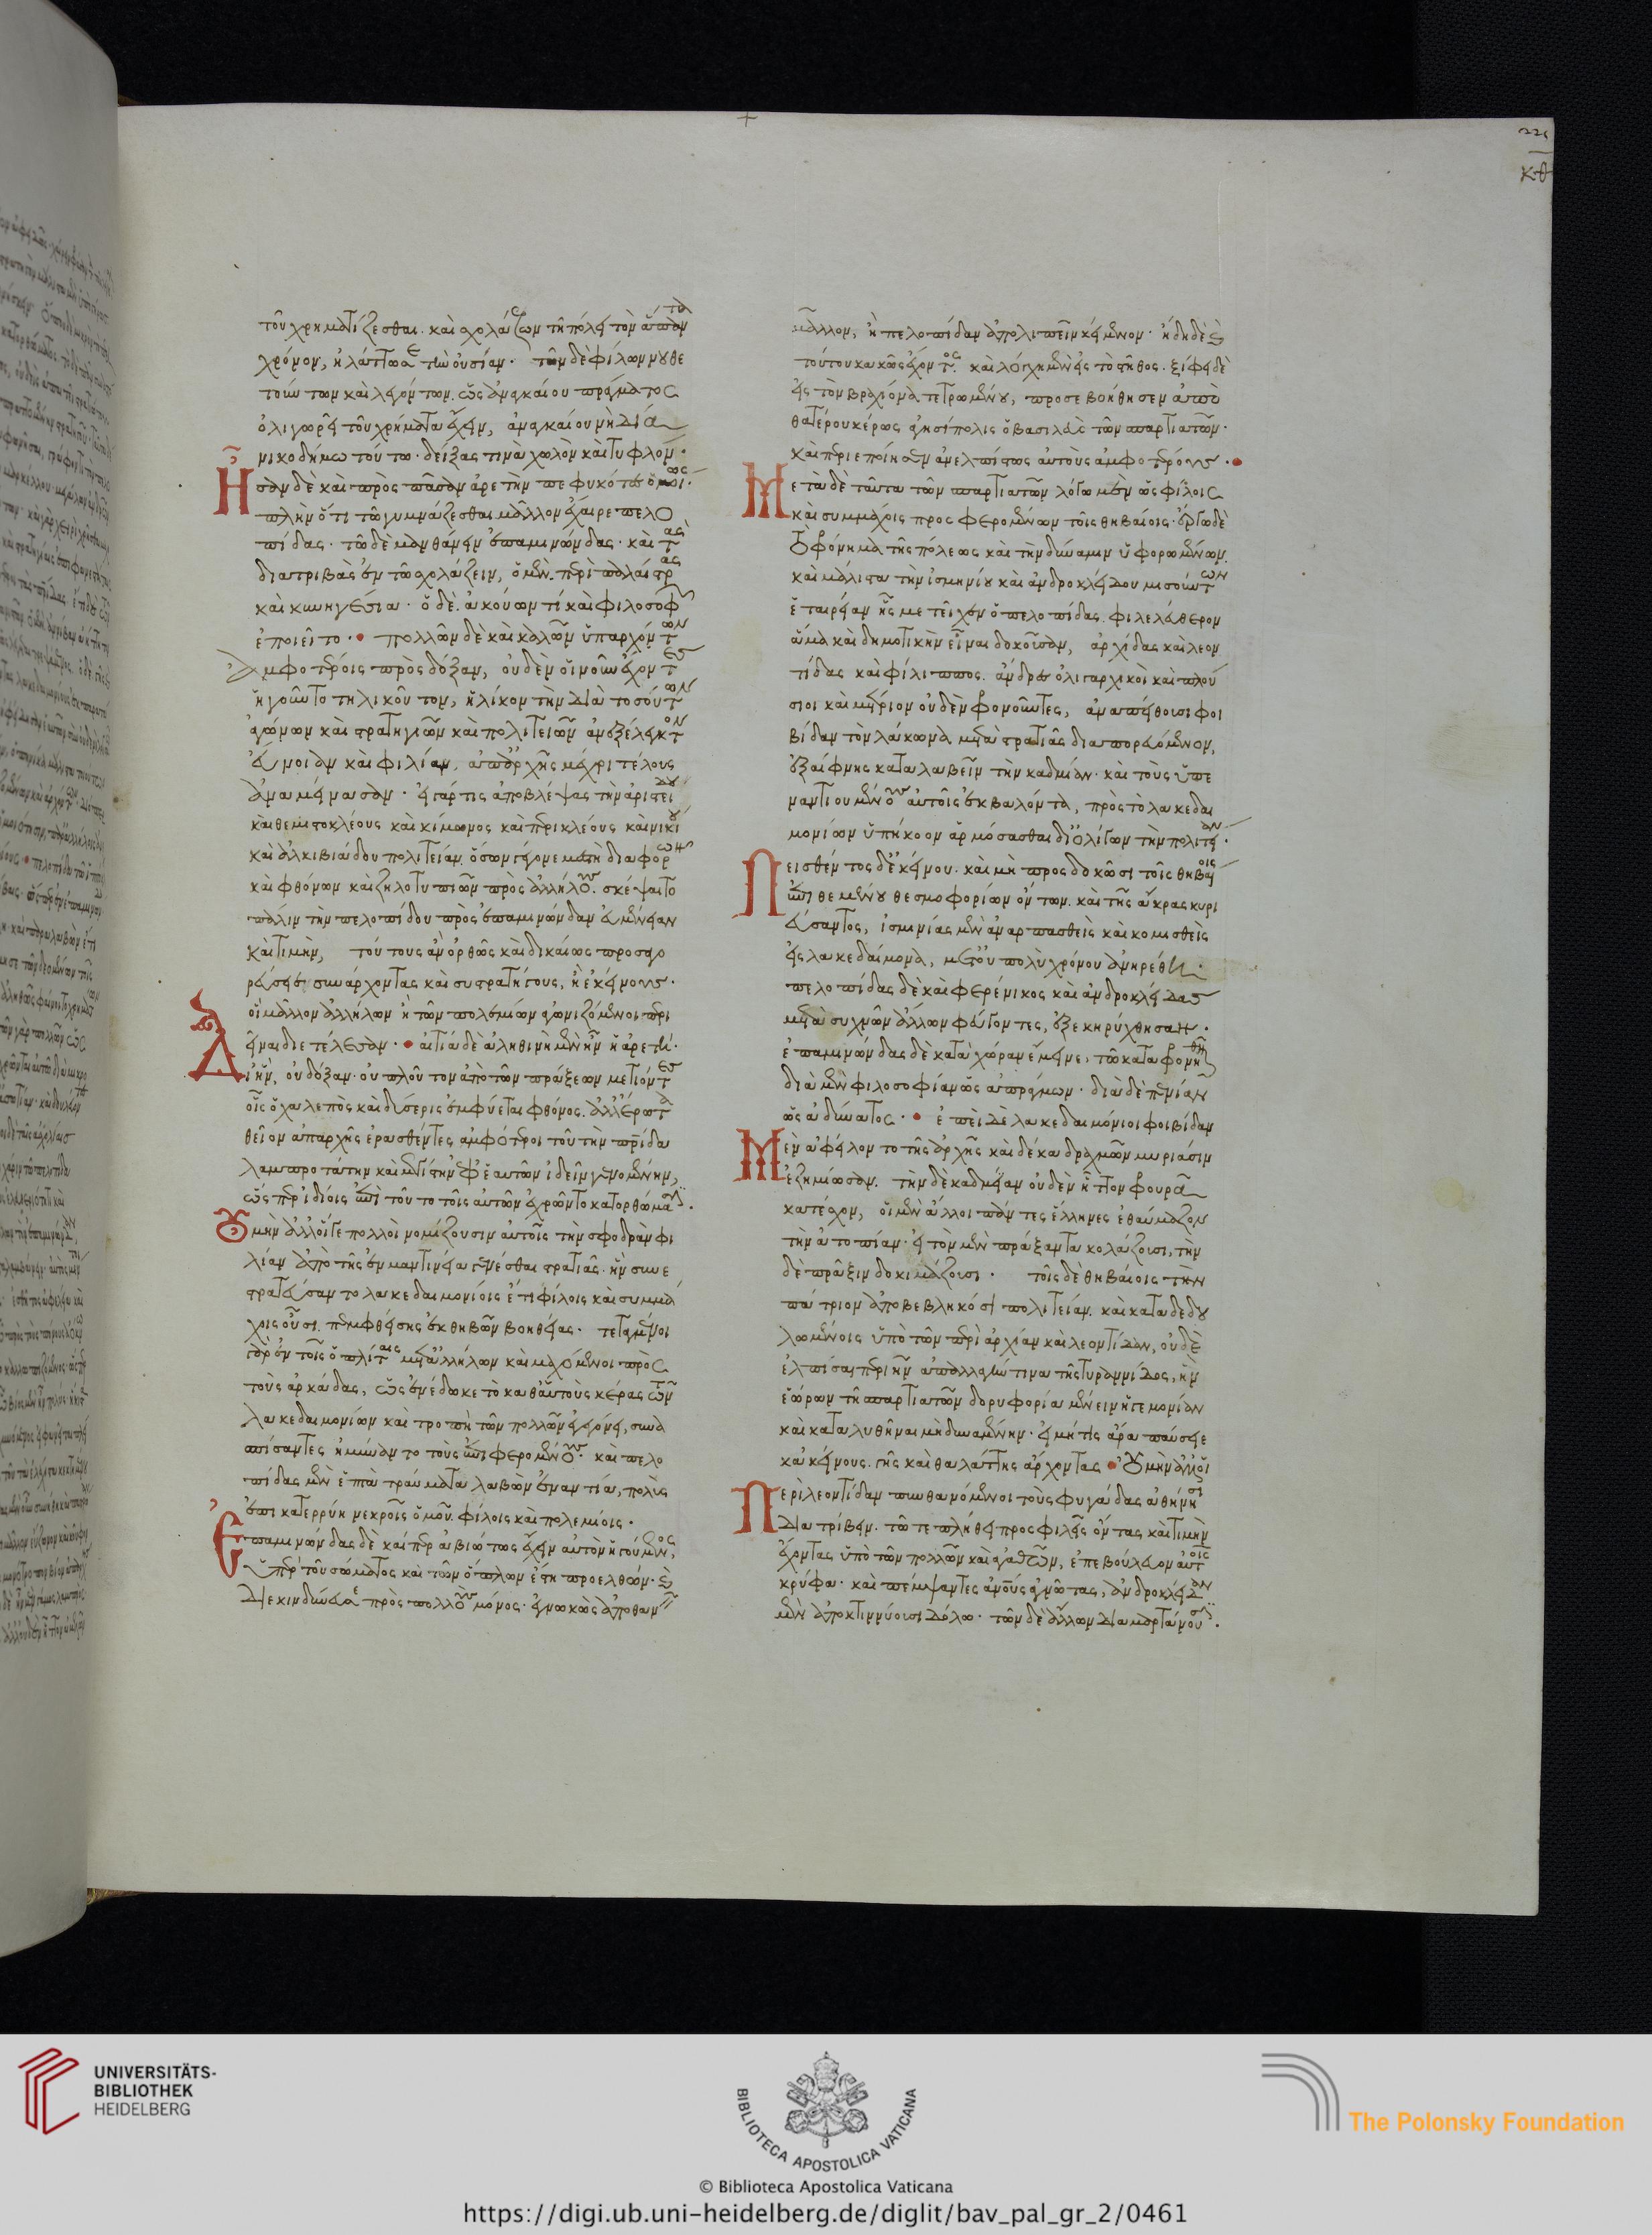 τοῦ χρηματίζεσθαι. καὶ σχολάζων τῇ πόλει τὸν ἅπαντα
χρόνον, ἠλάττωσε τὴν οὐσίαν. τῶν δὲ φίλων νουθε
τούντων καὶ λεγόντων. ὡς ἀναγκαίου πράγματος
ὀλιγωρεῖ τοῦ χρήματα ἔχειν, ἀναγκαίου νὴ Δία
νικοδήμω τούτω. δείξας τινὰ χωλὸν καὶ τυφλόν.
Ἦσαν δὲ καὶ πρὸς πᾶσαν ἀρετὴν πεφυκότες ὁμοίως.
πλὴν ὅτι τῶ γυμνάζεσθαι μᾶλλον ἔχαιρε πελο
πίδας. τῶ δὲ μανθάνειν ἐπαμινώνδας. καὶ τὰς
διατριβὰς ἐν τῶ σχολάζειν, ὁ μὲν περὶ παλαίστρας
καὶ κυνηγέσια. ὁ δὲ ἀκούων τι καὶ φιλοσοφῶν
ἐποιεῖτο. πολλῶν δὲ καὶ καλῶν ὑπαρχόντων
ἀμφοτέροις πρὸς δόξαν, οὐδὲν οἱ νοῦν ἔχοντες
ἡγοῦντο τηλικοῦτον, ἡλίκον τὴν διὰ τοσούτων
ἀγώνων καὶ στρατηγιῶν καὶ πολιτειῶν ἀνεξέλεγκτον
εὔνοιαν καὶ φιλίαν, ἀπ' ἀρχῆς μέχρι τέλους
ἀναμείνασαν. εἰ γάρ τις ἀποβλέψας τὴν ἀριστείδου
καὶ θεμιστοκλέους καὶ κίμωνος καὶ περικλέους καὶ νικίου
καὶ ἀλκιβιάδου πολιτείαν, ὅσων γέγονε μεστὴ διαφορῶν
καὶ φθόνων καὶ ζηλοτυπιῶν πρὸς ἀλλήλους. σκέψαιτο
πάλιν τὴν πελοπίδου πρὸς ἐπαμινώνδαν εὐμένειαν
καὶ τιμὴν, τούτους ἂν ὀρθῶς καὶ δικαίως προσαγο
ρεύσειε συνάρχοντας καὶ συστρατήγους, ἢ ἐκείνους.
οἳ μᾶλλον ἀλλήλων ἢ τῶν πολεμίων ἀγωνιζόμενοι περι
εῖναι διετέλεσαν. αἰτία δὲ ἀληθινὴ μὲν ἦν ἡ ἀρετή.
Δι' ἣν, οὐ δόξαν. οὐ πλοῦτον ἀπὸ τῶν πράξεων μετιόντες
οἷς ὁ χαλεπὸς καὶ δύσερις ἐμφύεται φθόνος. ἀλλ' ἔρωτα
θεῖον ἀπαρχῆς ἐρασθέντες ἀμφότεροι τοῦ τὴν πατρίδα
λαμπροτάτην καὶ μεγίστην ἐφ' ἑαυτῶν ἰδεῖν γενομένην,
ὥσπερ ἰδίοις ἐπὶ τοῦτο τοῖς αὐτῶν ἐχρῶντο κατορθώμασιν.
Οὐ μὴν ἀλλ' οἵ γε πολλοὶ νομίζουσιν αὐτοῖς τὴν σφοδρὰν φι
λίαν ἀπὸ τῆς ἐν μαντινεία γενέσθαι στρατιᾶς. ἣν συνε
στρατεύσαντο λακεδαιμονίοις ἔτι φίλοις καὶ συμμά
χοις οὖσι. πεμφθείσης ἐκ θηβῶν βοηθείας. τεταγμένοι
γὰρ ἐν τοῖς ὁπλίταις μετ' ἀλλήλων καὶ μαχόμενοι πρὸς
τοὺς ἀρκάδας, ὡς ἐνέδωκε τὸ καθ' αὑτοὺς κέρας τῶν
λακεδαιμονίων καὶ τροπὴ τῶν πολλῶν ἐγεγόνει, συνα
σπίσαντες ἠμύναντο τοὺς ἐπιφερομένους. καὶ πελο
πίδας μὲν ἑπτὰ τραύματα λαβὼν ἐναντία, πολλοῖς
ἐπικατερρύη νεκροῖς ὁμοῦ φίλοις καὶ πολεμίοις.
Ἐπαμινώνδας δὲ καίπερ ἀβιώτως ἔχειν αὐτὸν ἡγούμενος,
ὑπὲρ τοῦ σώματος καὶ τῶν ὅπλων ἔστη προελθὼν. καὶ
διεκινδύνευσε πρὸς πολλοὺς μόνος. ἐγνωκὼς ἀποθανεῖν
μᾶλλον, ἢ πελοπίδαν ἀπολιπεῖν κείμενον. ἤδη δὲ καὶ
τούτου κακῶς ἔχοντος. καὶ λόγχη μὲν εἰς τὸ στῆθος. ξίφει δὲ
εἰς τὸν βραχίονα τετρωμένου, προσεβοήθησεν ἀπὸ
θατέρου κέρως ἀγησίπολις ὁ βασιλεὺς τῶν σπαρτιατῶν.
καὶ περιεποίησεν ἀνελπίστως αὐτοὺς ἀμφοτέρους.
Μετὰ δὲ ταῦτα τῶν σπαρτιατῶν λόγω μὲν ὡς φίλοις
καὶ συμμάχοις προσφερομένων τοῖς θηβαίοις. ἔργω δὲ
τὸ φρόνημα τῆς πόλεως καὶ τὴν δύναμιν ὑφορωμένων.
καὶ μάλιστα τὴν ἰσμηνίου καὶ ἀνδροκλείδου μισούντων
ἑταιρείαν ἧς μετεῖχεν ὁ πελοπίδας. φιλελεύθερον
ἅμα καὶ δημοτικὴν εἶναι δοκοῦσαν, ἀρχίδας καὶ λεον
τίδας καὶ φίλιππος. ἄνδρες ὀλιγαρχικοὶ καὶ πλού
σιοι καὶ μέτριον οὐδὲν φρονοῦντες, ἀναπείθουσι φοι
βίδαν τὸν λάκωνα μετὰ στρατιᾶς διαπορευόμενον,
ἐξαίφνης καταλαβεῖν τὴν καδμείαν. καὶ τοὺς ὑπε
ναντιουμένους αὐτοῖς ἐκβαλόντα, πρὸς τὸ λακεδαι
μονίων ὑπήκοον ἁρμόσασθαι δι' ὀλίγων τὴν πολιτείαν.
Πεισθέντος δ' ἐκείνου. καὶ μὴ προσδοκῶσι τοῖς θηβαίοις
ἐπιθεμένου θεσμοφορίων ὄντων. καὶ τῆς ἄκρας κυρι
εύσαντος, ἰσμινίας μὲν ἀναρπασθεὶς καὶ κομισθεὶς
εἰς λακεδαίμονα, μετ' οὐ πολὺν χρόνον ἀνηρέθη.
πελοπίδας δὲ καὶ φερένικος καὶ ἀνδροκλείδας
μετὰ συχνῶν ἄλλων φεύγοντες, ἐξεκηρύχθησαν.
ἐπαμινώνδας δὲ κατὰ χώραν ἔμεινε, τῶ καταφρονηθῆναι
διὰ μὲν φιλοσοφίαν ὡς ἀπράγμων. διὰ δὲ πενίαν
ὡς ἀδύνατος. ἐπεὶ δὲ λακεδαιμόνιοι φοιβίδαν
Μὲν ἀφείλοντο τῆς ἀρχῆς καὶ δέκα δραχμῶν μυριάσιν
ἐζημίωσαν. τὴν δὲ καδμείαν οὐδὲν ἧττον φρουρᾶ
κατέσχον, οἱ μὲν ἄλλοι πάντες ἕλληνες ἐθαύμαζον
τὴν ἀτοπίαν. εἰ τὸν μὲν πράξαντα κολάζουσι, τὴν
δὲ πρᾶξιν δοκιμάζουσι. τοῖς δὲ θηβαίοις τὴν
πάτριον ἀποβεβληκόσι πολιτείαν. καὶ καταδεδου
λωμένοις ὑπὸ τῶν περὶ ἀρχίαν καὶ λεοντίδαν, οὐδὲ
ἐλπίσαι περιῆν ἀπαλλαγήν τινα τῆς τυραννίδος, ἣν
ἑώρων τῆ σπαρτιατῶν δορυφορουμένην ἡγεμονία
καὶ καταλυθῆναι μὴ δυναμένην. εἰ μή τις ἄρα παύσειε
κἀκείνους γῆς καὶ θαλάττης ἄρχοντας. Οὐ μὴν ἀλλ' οἱ
Περὶ λεοντίδαν πυνθανόμενοι τοὺς φυγάδας ἀθήνησι
διατρίβειν. τῶ τε πλήθει προσφιλεῖς ὄντας καὶ τιμὴν
ἔχοντας ὑπὸ τῶν πολλῶν καὶ ἀγαθῶν, ἐπεβούλευον αὐτοῖς
κρύφα. καὶ πέμψαντες ἀνθρώπους ἀγνῶτας, ἀνδροκλείδαν
μὲν ἀποκτιννύουσι δόλω. τῶν δὲ ἄλλων διαμαρτάνουσιν.
κθ
UNIVERSITÄTS-
BIBLIOTHEK
HEIDELBERG
BIBLIOTECA APOSTOLICA VATICANA
The Polonsky Foundation
© Biblioteca Apostolica Vaticana
https://digi.ub.uni-heidelberg.de/diglit/bav_pal_gr_2/0461